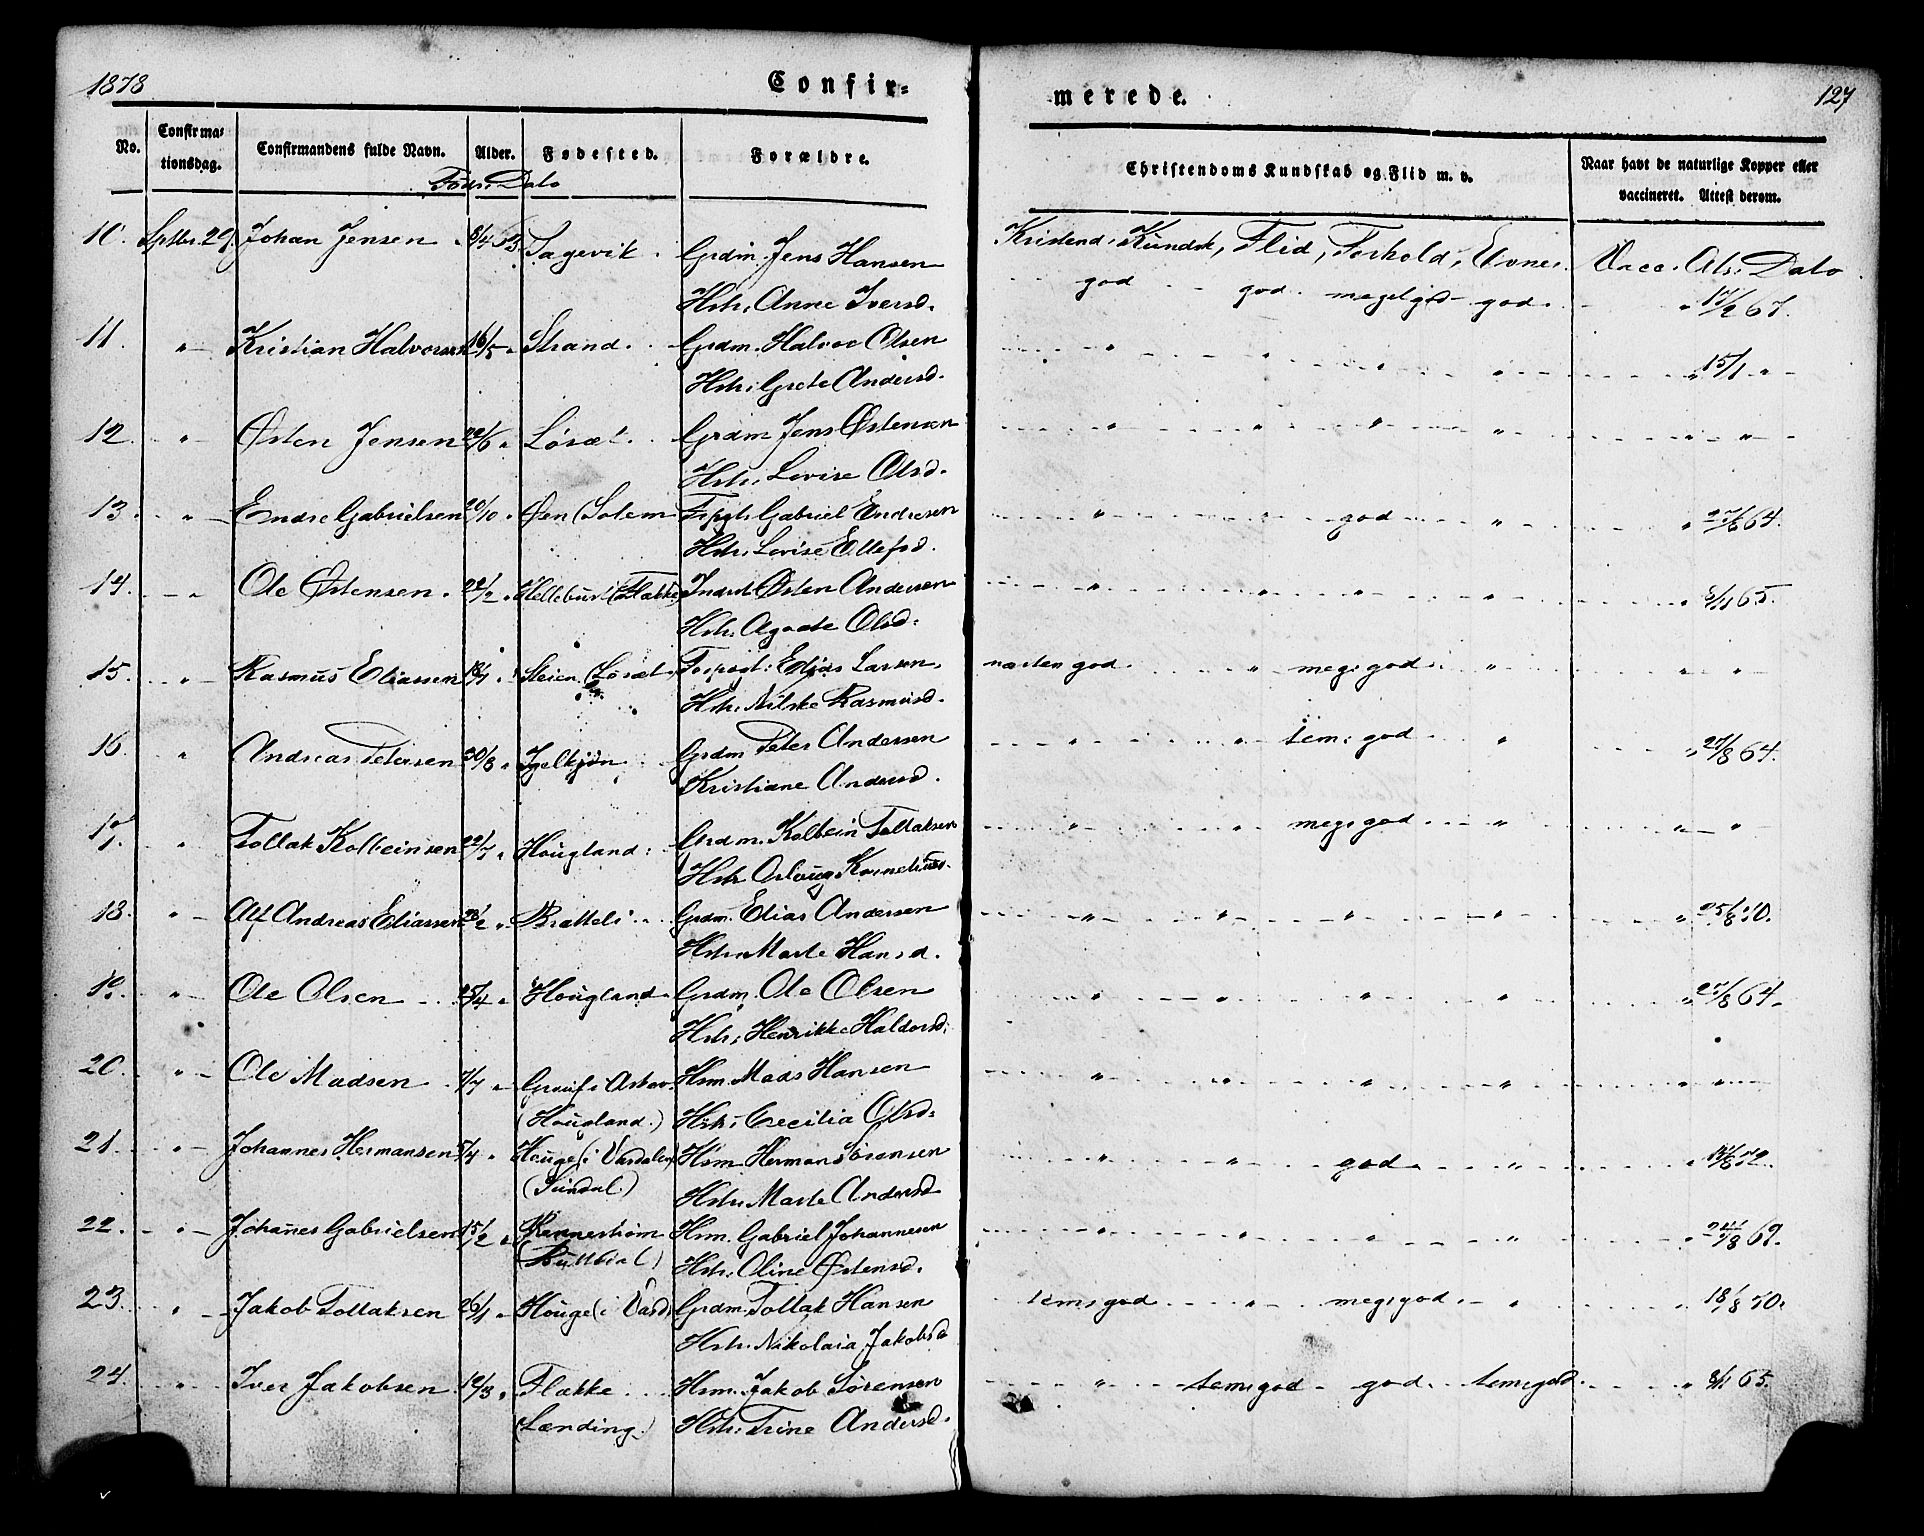 1878
Confir=
merede.
127
No.
Confirma=
tionsdag.
Confirmandens fulde Navn.
Alder.
Fødested.
Forældre.
Christendoms Kundskab og Flid m. v.
Naar havt de naturlige Kopper eller
vaccineret. Attest derom.
Føds. Dato
Kristend. Kundsk, Flid, Forhold, Evner. Vacc. Ats. Dato
10. Septbr. 29. Johan Jensen 8/4 63. Tagevik. Grdm. Jens Hansen god god. meget god god.
Hstr. Anne Iversd.
11. " Kristian Halvorsen 16/5 " Strand. Grdm. Halvor Olsen " " " " " 15/1 "
Hstr. Grete Andersd.
12. " Østen Jensen 22/6 " Løsæt. Grdm Jens Østensen " " " " "
Hstr. Lovise Olsd.
13. " Endre Gabrielsen 20/10 " Øen (Solem Forpgt. Gabriel Endresen " god " " 27/8 64.
Hstr. Lovise Ellefsd.
14. " Ole Østensen. 22/2 " Hellebust (Flække) Inderst Østen Andersen " " " " " 65.
Hstr. Agaate Olsd.
15. " Rasmus Eliassen 18/1 " Steien (Løsæt. Forpagt. Elias Larsen. næsten god. " meg. god " " "
Hstr. Nilske Rasmusd.
16 " Andreas Petersen 30/8 " Igelkjøn Grdm Peter Andersen " " tem. god " " 27/8 64.
Kristiane Andersd.
17. " Tollak Kolbeinsen 22/7 " Hougland. Grdm. Kolbein Tollaksen " " meg. god " " "
Hstr Aslaug Kornelius.
18. " Alf Andreas Eliassen 28/2 " Bratteli Grdm. Elias Andersen " " " " " 25/8 70.
Hstr. Marte Hansd.
19. " Ole Olsen 25/4 " Hougland Grdm. Ole Olsen " " " " " 27/8 64.
Hstr. Henrikke Haldorsd.
20. " Ole Madsen. 7/7 " Hsm. Mads Hansen " " " " "
(Hougland.) Hstr. Cecilia Olsd.
21. " Johannes Hermansen 5/4 " Houge (i Vardalen Hsm. Herman Sørensen " " god " "
(Sundal.) Hstr. Marte Andersd
22. " Johanes Gabrielsen 15/2 " Hsm. Gabriel Johannesen " " " " " 69.
Hstr. Oline Østensd.
23. " Jakob Tollaksen 26/1 " Houge (i Vard. Grdm. Tollak Hansen tem. god " meg. god " 18/8 70.
Hstr. Nikolaia Jakobsd
24. " Iver Jakobsen. 12/3 " Flække. Hsm. Jakob Sørensen " tem. god god. tem. god. " 65.
(Lænding.) Hstr. Trine Andersd.